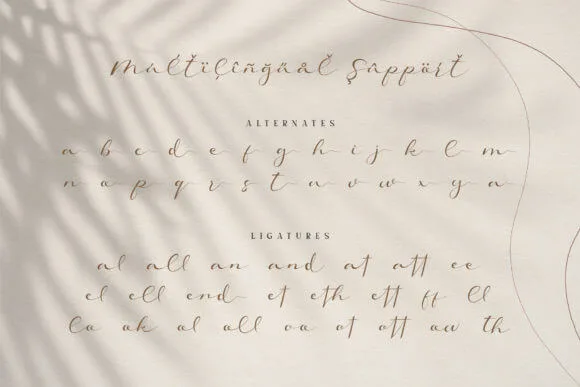 Múlťïļîñğűåľ Şûppöřť
ALTERNATES
a b c d e f g h i j k l m
n o p q r s t u v w x y z
LIGATURES
al all an and at att ee
el ell end et eth ett ff ll
lo ok ol oll oo ot ott ow th